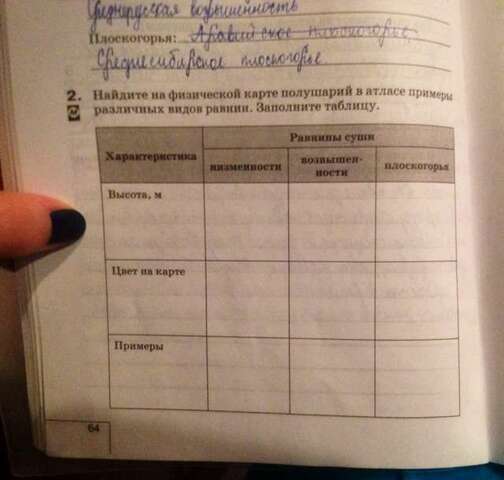 Среднерусская возвышенность
Плоскогорья: Аравийское плоскогорье,
Среднесибирское плоскогорье
2. Найдите на физической карте полушарий в атласе примеры
различных видов равнин. Заполните таблицу.
Характеристика
Равнины суши
низменности
возвышен-
ности
плоскогорья
Высота, м
Цвет на карте
Примеры
64